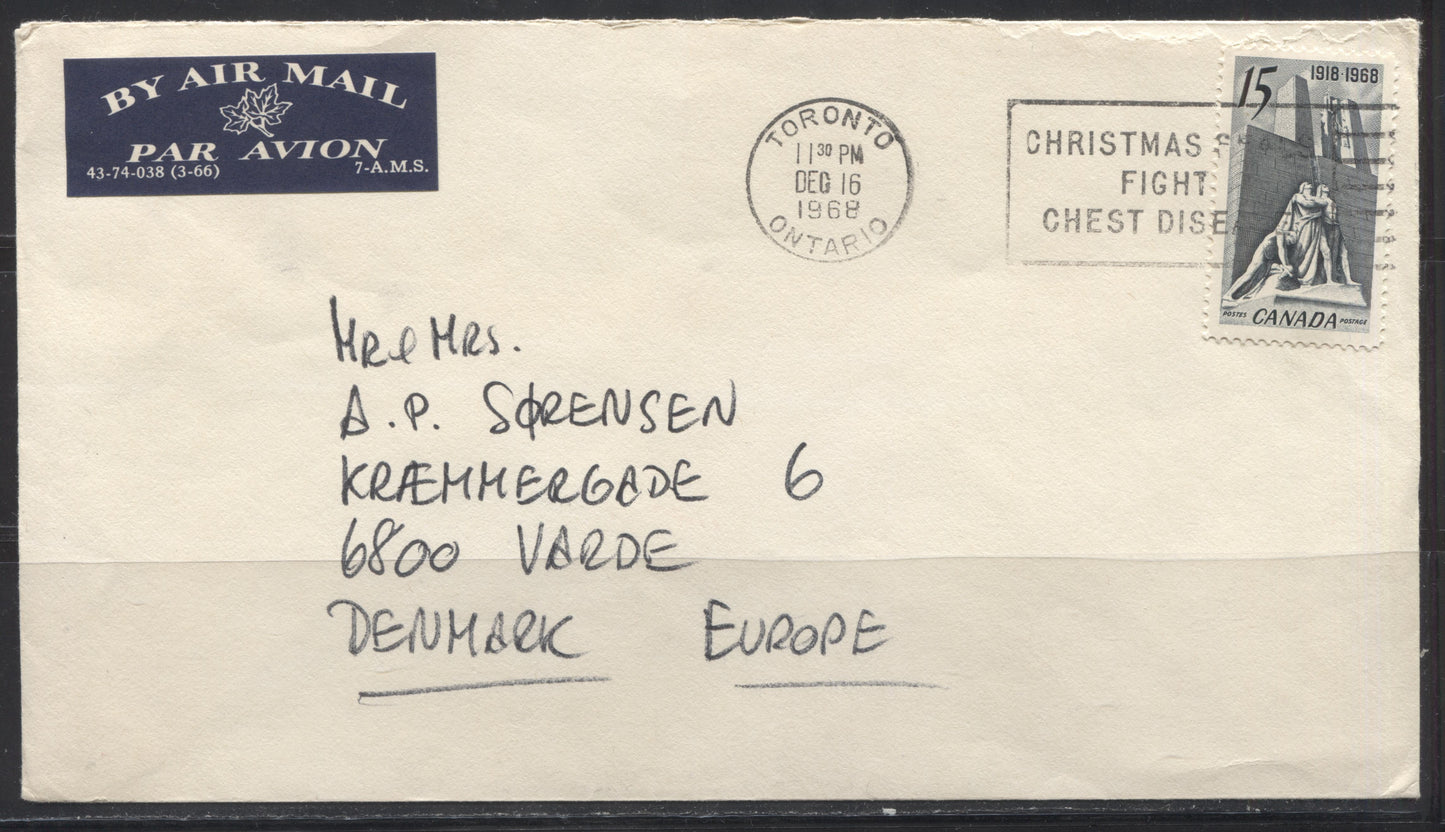 BY AIR MAIL
PAR AVION
43-74-038 (3-66) 7-A.M.S.
TORONTO
11 30 PM
DEC 16
1968
ONTARIO
CHRISTMAS
FIGHT
CHEST
15 1918·1968
POSTES CANADA POSTAGE
Mr & Mrs.
A.P. SØRENSEN
KRÆMMERGADE 6
6800 VARDE
DENMARK EUROPE